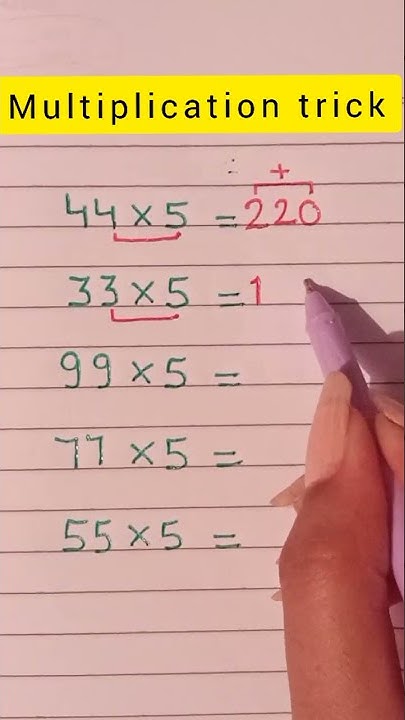 Multiplication trick
+
44 × 5 = 220
33 × 5 = 1
99 × 5 =
77 × 5 =
55 × 5 =